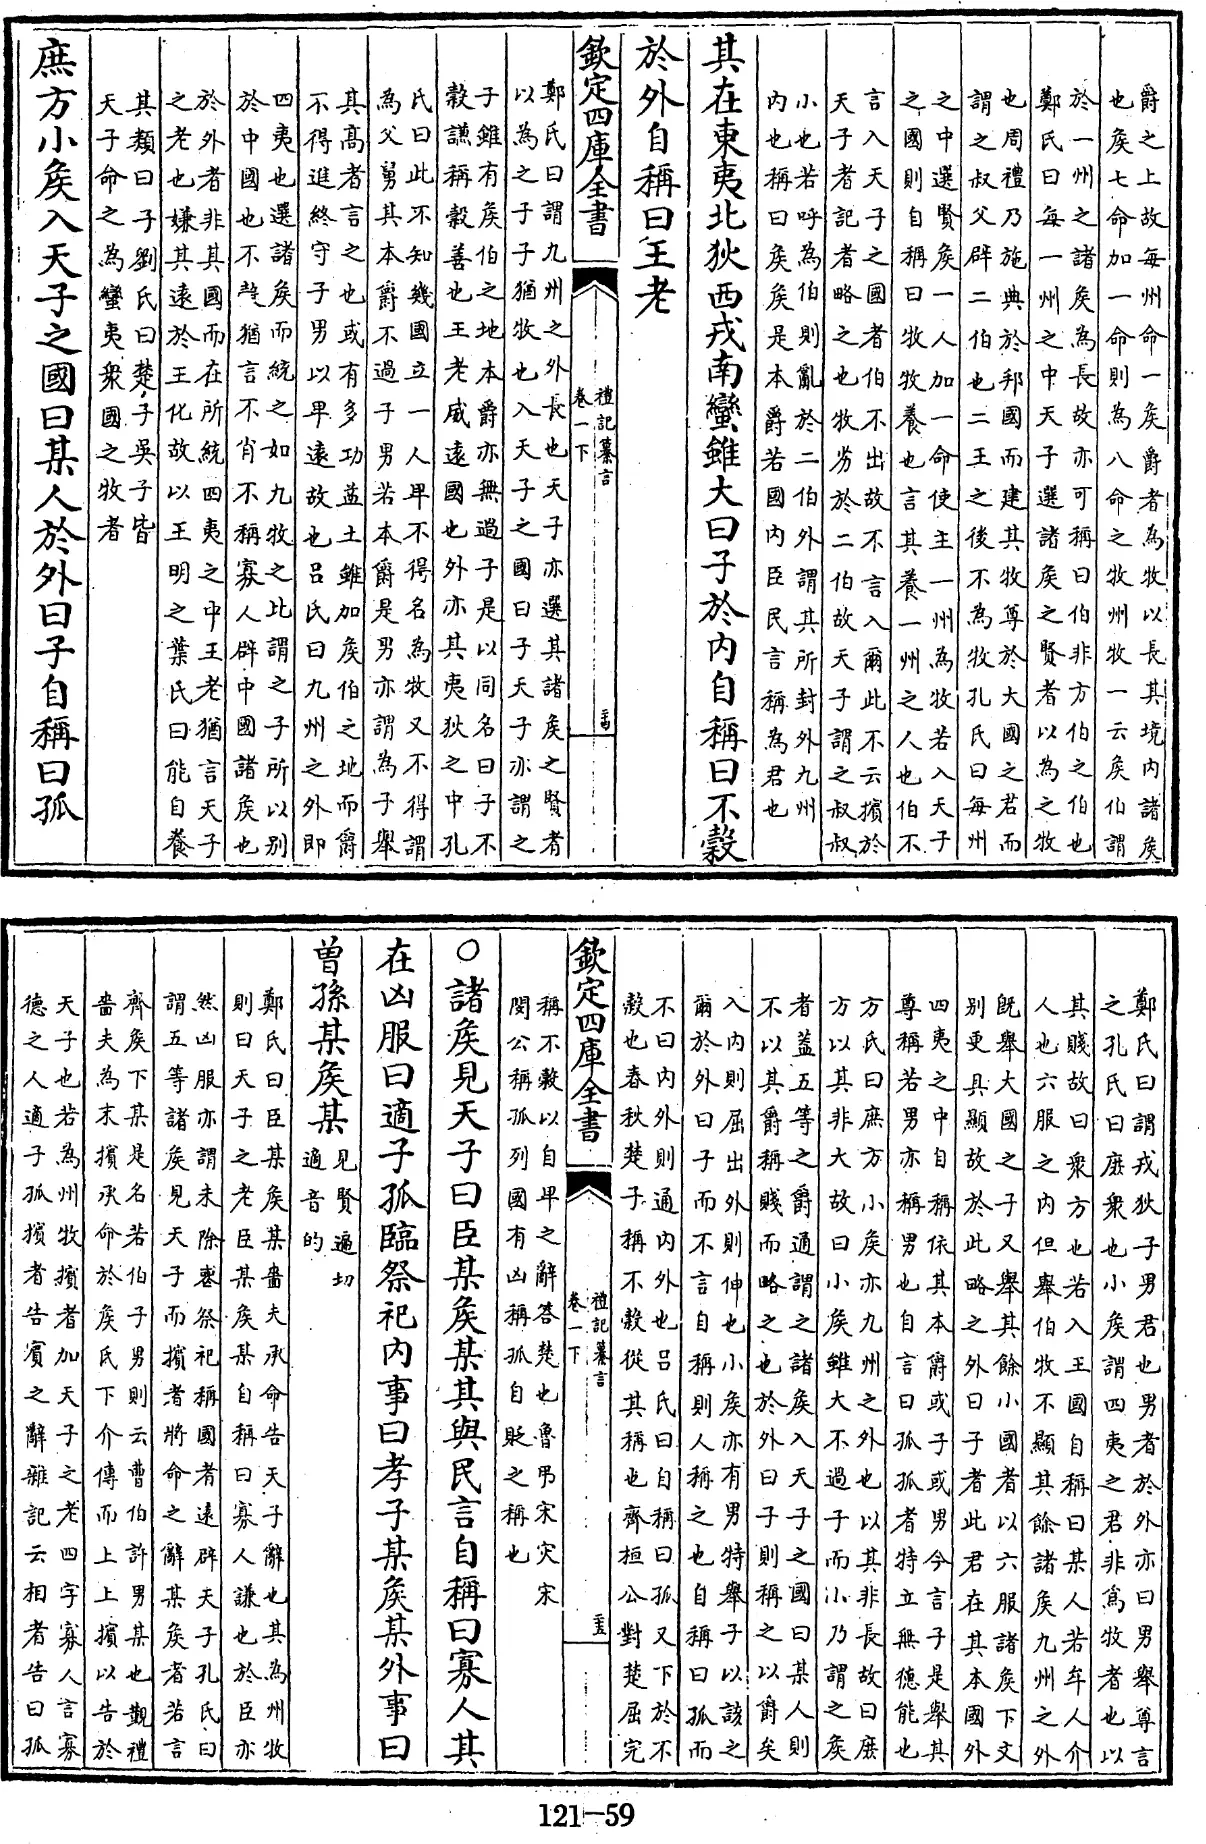 爵之上故每州命一矦爵者為牧以長其境内諸矦
也矦七命加一命則為八命之牧州牧一云矦伯謂
於一州之諸矦為長故亦可稱曰伯非方伯之伯也
鄭氏曰每一州之中天子選諸矦之賢者以為之牧
也周禮乃施典於邦國而建其牧尊於大國之君而
謂之叔父辟二伯也二王之後不為牧孔氏曰每州
之中選賢矦一人加一命使主一州為牧若入天子
之國則自稱曰牧牧養也言其養一州之人也伯不
言入天子之國者伯不出故不言入爾此不云擯於
天子者記者略之也牧劣於二伯故天子謂之叔叔
小也若呼為伯則亂於二伯外謂其所封外九州
内也稱曰矦矦是本爵若國内臣民言稱為君也
其在東夷北狄西戎南蠻雖大曰子於内自稱曰不穀
於外自稱曰王老
欽定四庫全書
禮記纂言
卷一下
鄭氏曰謂九州之外長也天子亦選其諸矦之賢者
以為之子子猶牧也入天子之國曰子天子亦謂之
子雖有矦伯之地本爵亦無過子是以同名曰子不
穀謙稱穀善也王老威遠國也外亦其夷狄之中孔
氏曰此不知幾國立一人卑不得名為牧又不得謂
為父舅其本爵不過子男若本爵是男亦謂為子舉
其高者言之也或有多功益土雖加矦伯之地而爵
不得進終守子男以卑遠故也吕氏曰九州之外即
四夷也選諸矦而統之如九牧之比謂之子所以别
於中國也不穀猶言不肖不稱寡人辟中國諸矦也
於外者非其國而在所統四夷之中王老猶言天子
之老也嫌其遠於王化故以王明之葉氏曰能自養
其類曰子劉氏曰楚子吳子皆
天子命之為蠻夷衆國之牧者
庶方小矦入天子之國曰某人於外曰子自稱曰孤
鄭氏曰謂戎狄子男君也男者於外亦曰男舉尊言
之孔氏曰庶衆也小矦謂四夷之君非為牧者也以
其賤故曰衆方也若入王國自稱曰某人若牟人介
人也六服之内但舉伯牧不顯其餘諸矦九州之外
既舉大國之子又舉其餘小國者以六服諸矦下文
别更具顯故於此略之外曰子者此君在其本國外
四夷之中自稱依其本爵或子或男今言子是舉其
尊稱若男亦稱男也自言曰孤孤者特立無德能也
方氏曰庶方小矦亦九州之外也以其非長故曰庶
方以其非大故曰小矦雖大不過子而小乃謂之矦
者蓋五等之爵通謂之諸矦入天子之國曰某人則
不以其爵稱賤而略之也於外曰子則稱之以爵矣
入内則屈出外則伸也小矦亦有男特舉子以該之
爾於外曰子而不言自稱則人稱之也自稱曰孤而
不曰内外則通内外也吕氏曰自稱曰孤又下於不
穀也春秋楚子稱不穀從其稱也齊桓公對楚屈完
欽定四庫全書
禮記纂言
卷一下
稱不穀以自卑之辭荅楚也魯弔宋灾宋
閔公稱孤列國有凶稱孤自貶之稱也
○諸矦見天子曰臣某矦某其與民言自稱曰寡人其
在凶服曰適子孤臨祭祀内事曰孝子某矦某外事曰
曾孫某矦某
見賢遍切
適音的
鄭氏曰臣某矦某嗇夫承命告天子辭也其為州牧
則曰天子之老臣某矦某自稱曰寡人謙也於臣亦
然凶服亦謂未除喪祭祀稱國者遠辟天子孔氏曰
謂五等諸矦見天子而擯者將命之辭某矦者若言
齊矦下某是名若伯子男則云曹伯許男某也覲禮
嗇夫為末擯承命於矦氏下介傳而上上擯以告於
天子也若為州牧擯者加天子之老四字寡人言寡
德之人適子孤擯者告賓之辭雜記云相者告曰孤
121-59